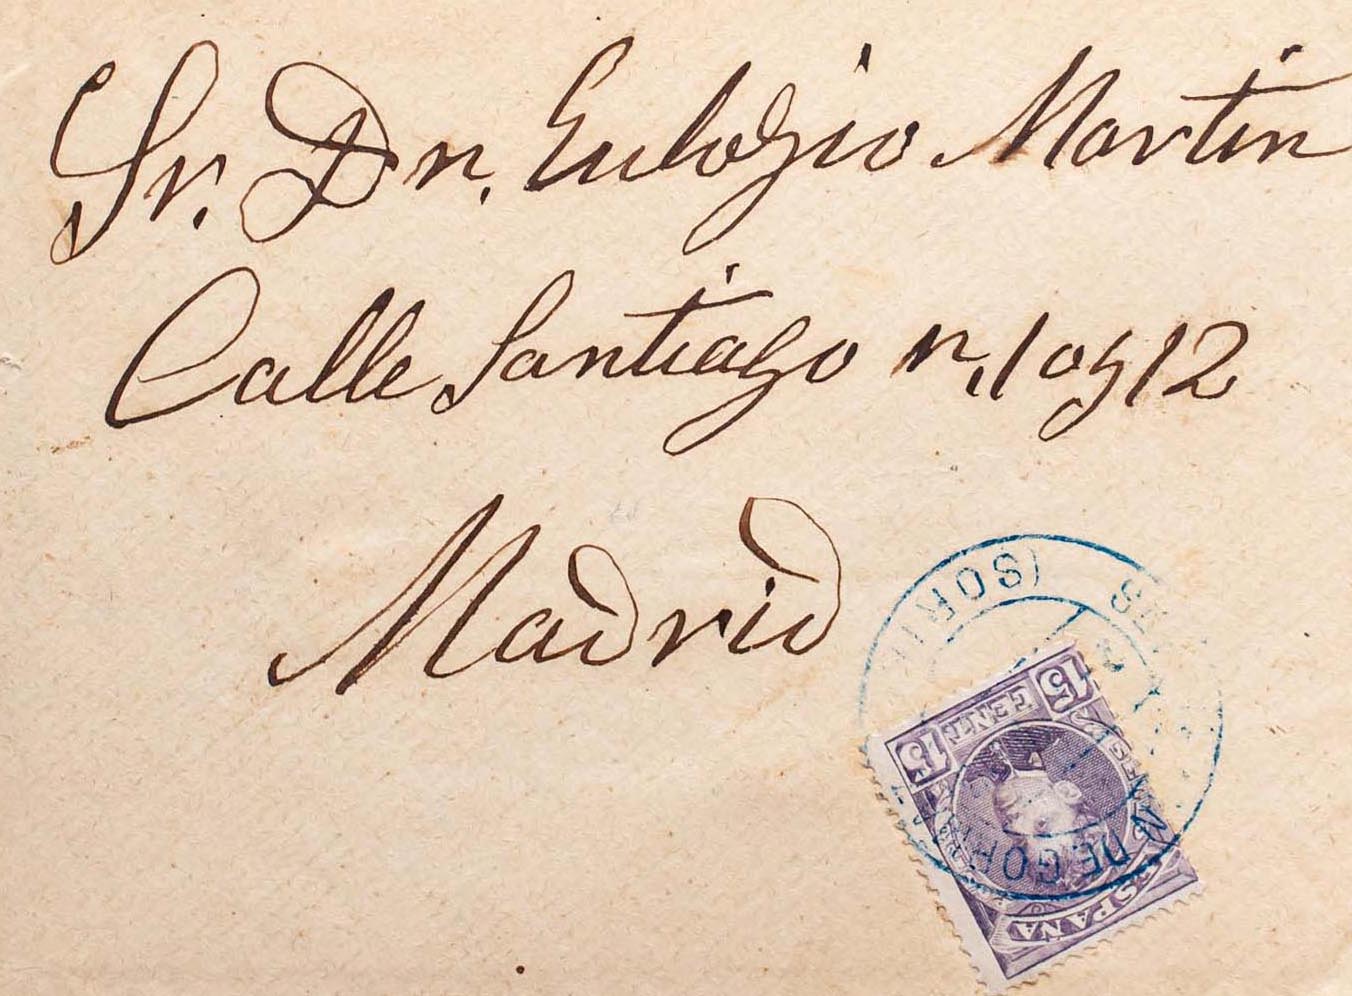 Sr. Dn. Eulogio Martin
Calle Santiago n, 10 y 12
Madrid
(SORIA
DE
15 CENTS 15
ESPAÑA